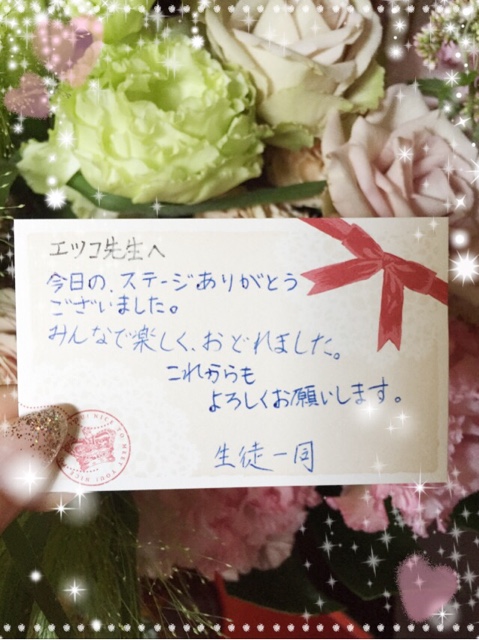 エツコ先生へ
今日の、ステージありがとう
ございました。
みんなで楽しく、おどれました。
これからも
よろしくお願いします。
生徒一同
NICE TO MEET YOU!